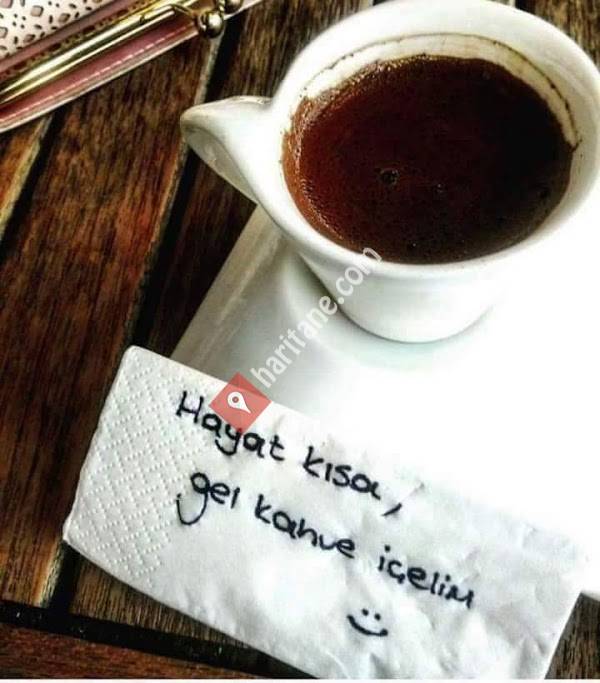 haritane.com
Hayat kısa,
gel kahve içelim
:)